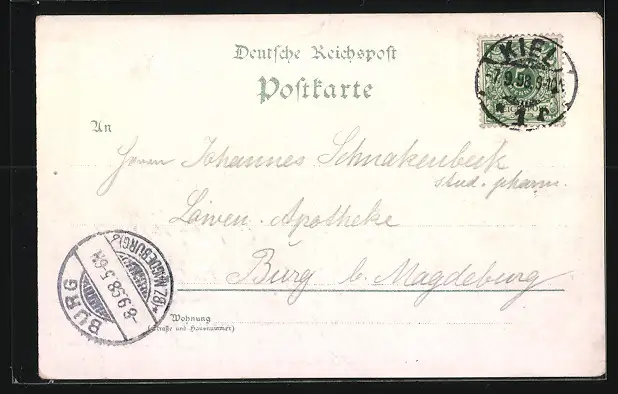 Deutsche Reichspost
Postkarte
KIEL
7.9.98.9-10
* 1 r
An
Herrn Johannes Schnakenbeck
stud. pharm.
Löwen-Apotheke
Burg b. Magdeburg
BURG
-8.9.98.5-6N
(MAGDEBURG)
Wohnung
(Straße und Hausnummer)